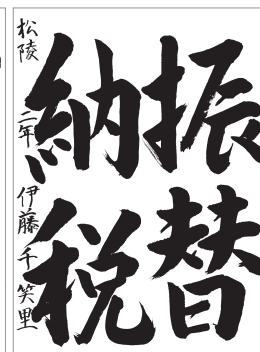 振替
納税
松陵 二年 伊藤千笑里